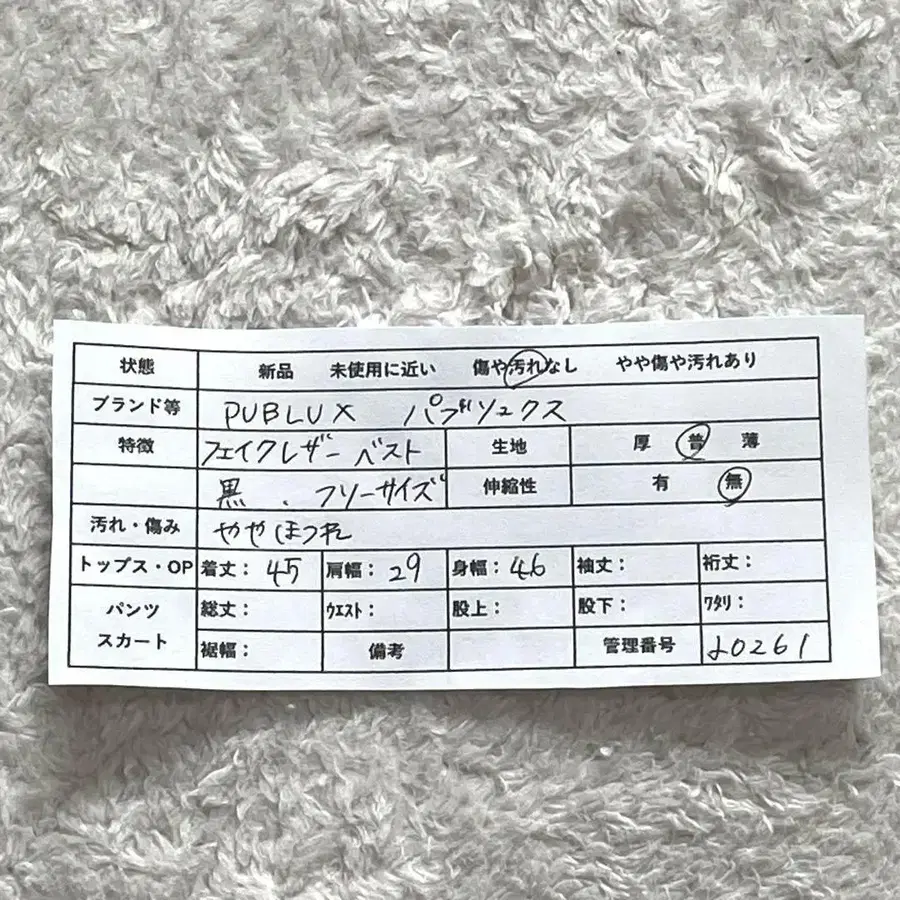 状態 新品 未使用に近い 傷や汚れなし やや傷や汚れあり
ブランド等 PUBLUX パブリュクス
特徴 フェイクレザーベスト 生地 厚 普 薄
黒、フリーサイズ 伸縮性 有 無
汚れ・傷み ややほつれ
トップス・OP 着丈: 45 肩幅: 29 身幅: 46 袖丈: 裄丈:
パンツ 総丈: ウエスト: 股上: 股下: ワタリ:
スカート 裾幅: 備考 管理番号 20261